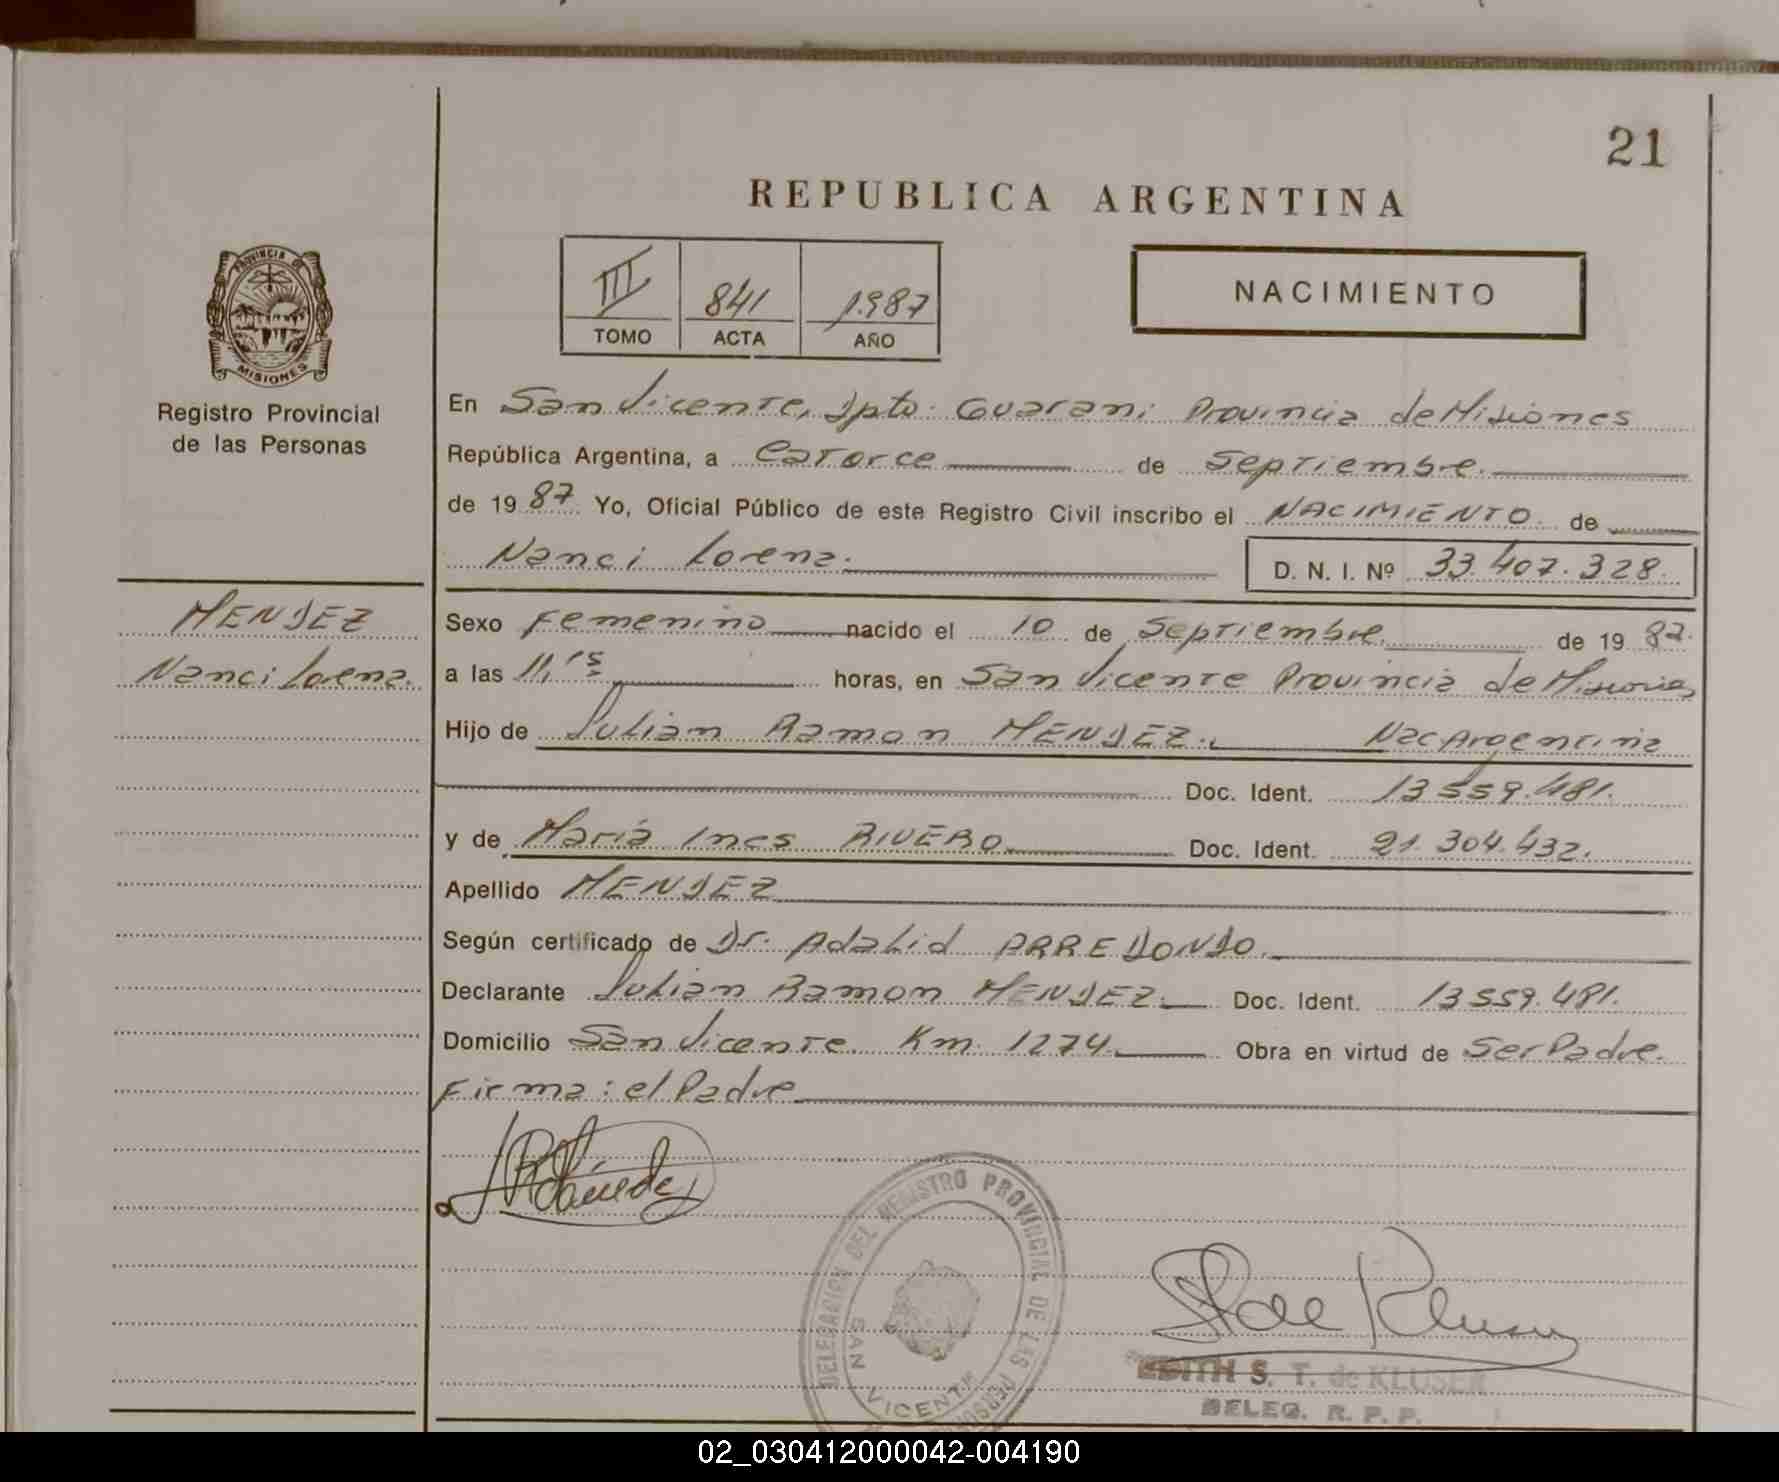 21
REPUBLICA ARGENTINA
III 841 1.987
TOMO ACTA AÑO
NACIMIENTO
PROVINCIA DE
MISIONES
Registro Provincial
de las Personas
MENDEZ
Nanci Lorena.
En San Vicente, Dpto. Guarani Provincia de Misiones
República Argentina, a Catorce de Septiembre.
de 19 87. Yo, Oficial Público de este Registro Civil inscribo el NACIMIENTO de
Nanci Lorena. D. N. I. Nº 33.407.328.
Sexo Femenino nacido el 10 de Septiembre. de 19 87.
a las 11,15 horas, en San Vicente Provincia de Misiones
Hijo de Julian Ramon MENDEZ. Nac Argentina
Doc. Ident. 13.559.481.
y de Maria Ines RIVERO. Doc. Ident. 21.304.432.
Apellido MENDEZ
Según certificado de Dr. Adalid ARREDONDO.
Declarante Julian Ramon MENDEZ. Doc. Ident. 13.559.481.
Domicilio San Vicente. Km. 1274. Obra en virtud de Ser Padre.
Firma: el Padre
DELEGACION DEL REGISTRO PROVINCIAL DE LAS
SAN VICENTE
EDITH S. T. de KLUSER
DELEG. R. P. P.
02_030412000042-004190